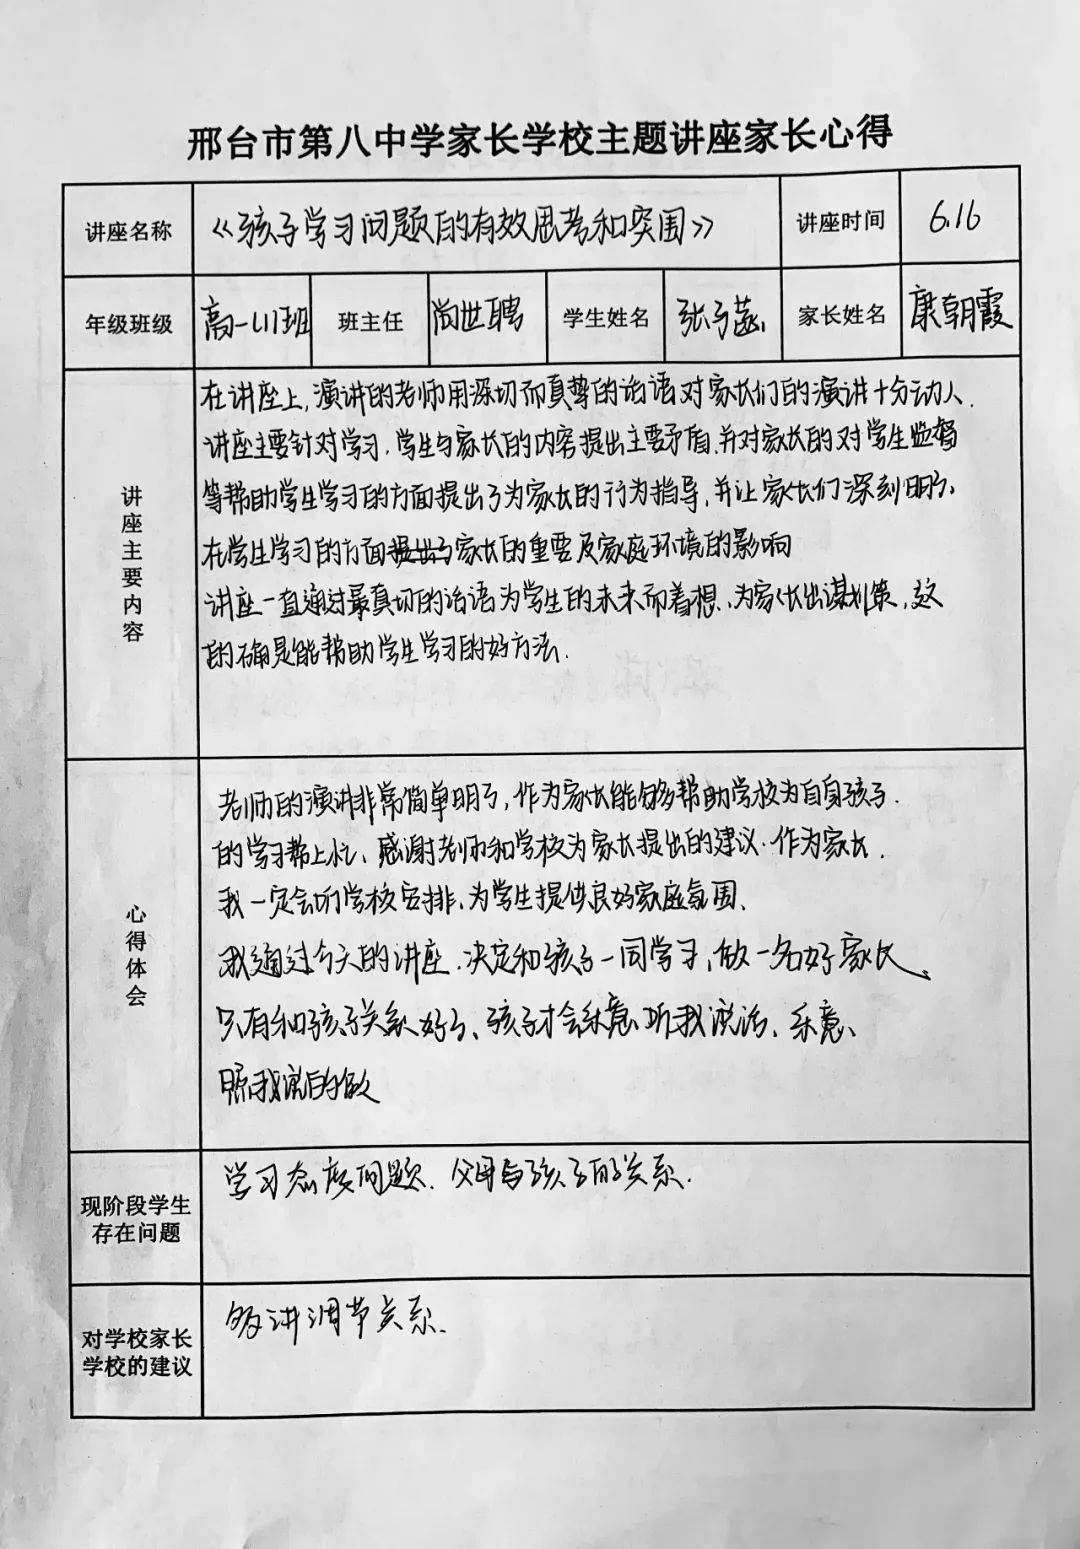 邢台市第八中学家长学校主题讲座家长心得
讲座名称 《孩子学习问题的有效思考和突围》 讲座时间 6.16
年级班级 高一(1)班 班主任 尚世聘 学生姓名 张子菡 家长姓名 康朝霞
讲座主要内容
在讲座上,演讲的老师用深切而真挚的话语对家长们的演讲十分动人.
讲座主要针对学习.学生与家长的内容提出主要矛盾.并对家长的对学生监督
等帮助学生学习的方面提出了为家长的行为指导,并让家长们深刻明了,
在学生学习的方面提出了家长的重要及家庭环境的影响
讲座一直通过最真切的话语为学生的未来而着想、为家长出谋划策,这
的确是能帮助学生学习的好方法.
心得体会
老师的演讲非常简单明了,作为家长能够帮助学校为自身孩子.
的学习帮上忙、感谢老师和学校为家长提出的建议.作为家长.
我一定会听学校安排、为学生提供良好家庭氛围、
我通过今天的讲座.决定和孩子一同学习,做一名好家长、
只有和孩子关系好了、孩子才会乐意听我说话、乐意、
照我说的做
现阶段学生
存在问题
学习态度问题.父母与孩子的关系.
对学校家长
学校的建议
多讲调节关系.